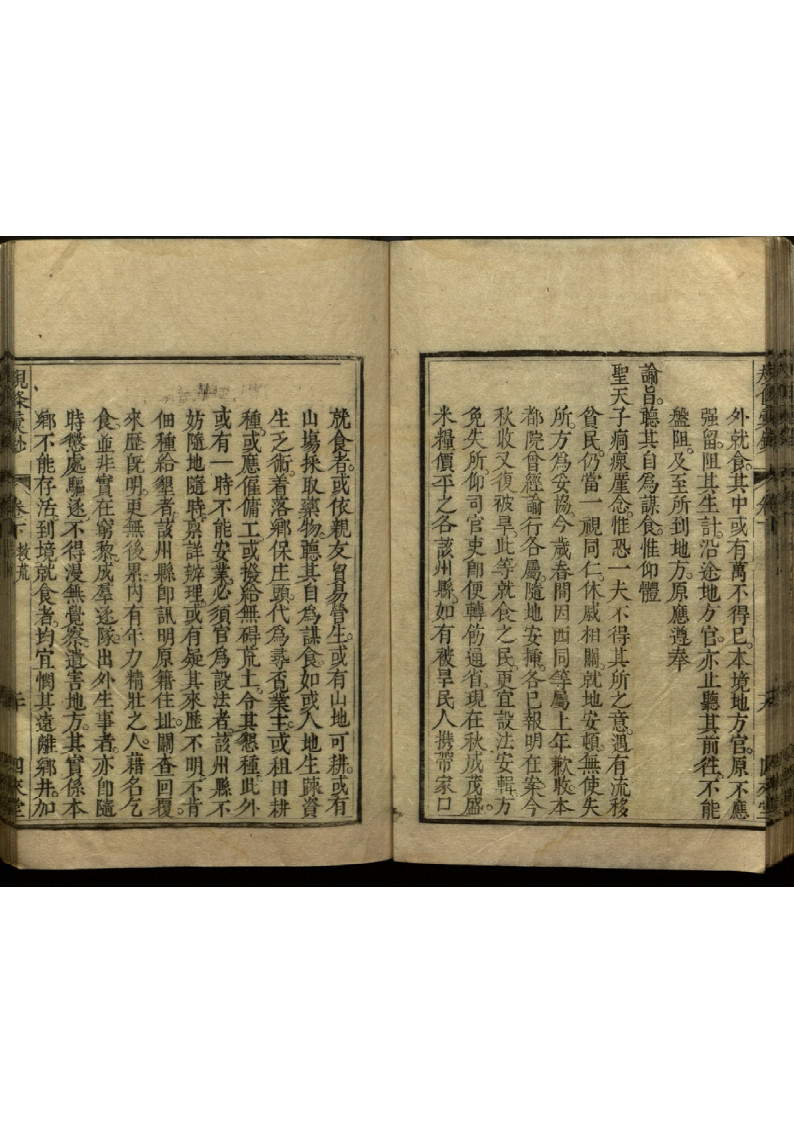 外就食。其中或有萬不得已。本境地方官。原不應
强留。阻其生計。沿途地方官。亦止聽其前往。不能
盤阻。及至所到地方。原應遵奉
諭旨。聽其自爲謀食。惟仰體
聖天子痌瘝廑念。惟恐一夫不得其所之意。遇有流移
貧民。仍當一視同仁。休戚相關。就地安頓。無使失
所。方爲妥協。今歲春間。因西同等屬上年歉收。本
都院曾經諭行各屬。隨地安揷。各已報明在案。今
秋收又復被旱。此等就食之民。更宜設法安輯。方
免失所。仰司官吏。卽便轉飭通省。現在秋成茂盛。
米糧價平之各該州縣。如有被旱民人。携帶家口
就食者。或依親友貿易營生。或有山地可耕。或有
山塲採取藥物。聽其自爲謀食。如或人地生踈。資
生乏術。着落鄉保庄頭。代爲尋覔業主。或租田耕
種。或應僱傭工。或撥給無碍荒土。令其懇種。此外
或有一時不能安業。必須官爲設法者。該州縣不
妨隨地隨時。禀詳辦理。或有疑其來歷不明。不肯
佃種給墾者。該州縣卽訊明原籍住址。關查回覆。
來歷旣明。更無後累。內有年力精壯之人。藉名乞
食。並非實在窮黎。成羣逐隊。出外生事者。亦卽隨
時懲處驅逐。不得漫無覺察。遺害地方。其實係本
鄉不能存活。到境就食者。均宜憫其遠離鄉井。加
規條彙鈔
卷下 救荒
二十
四來堂